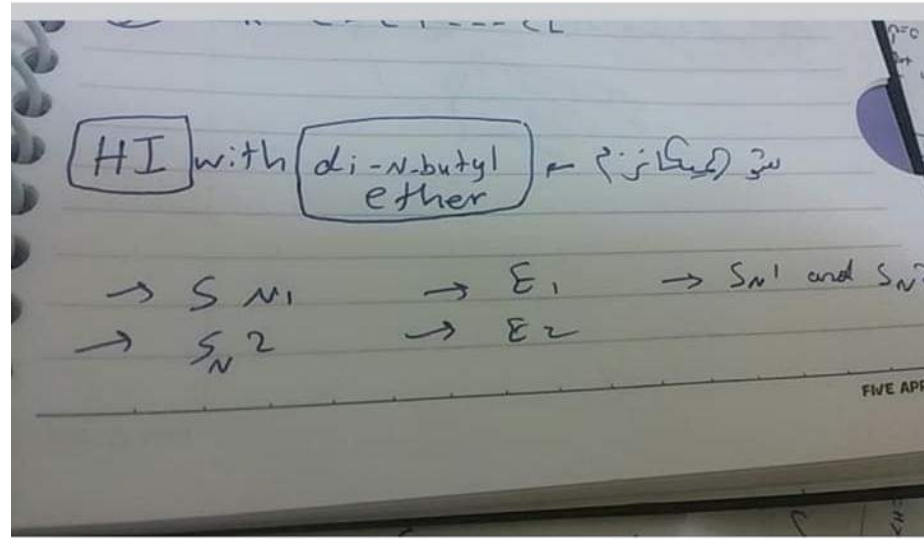 HI with di-N-butyl ether ← شو الميكانزم
→ S N1 → E1 → SN1 and SN2
→ SN2 → E2
FIVE